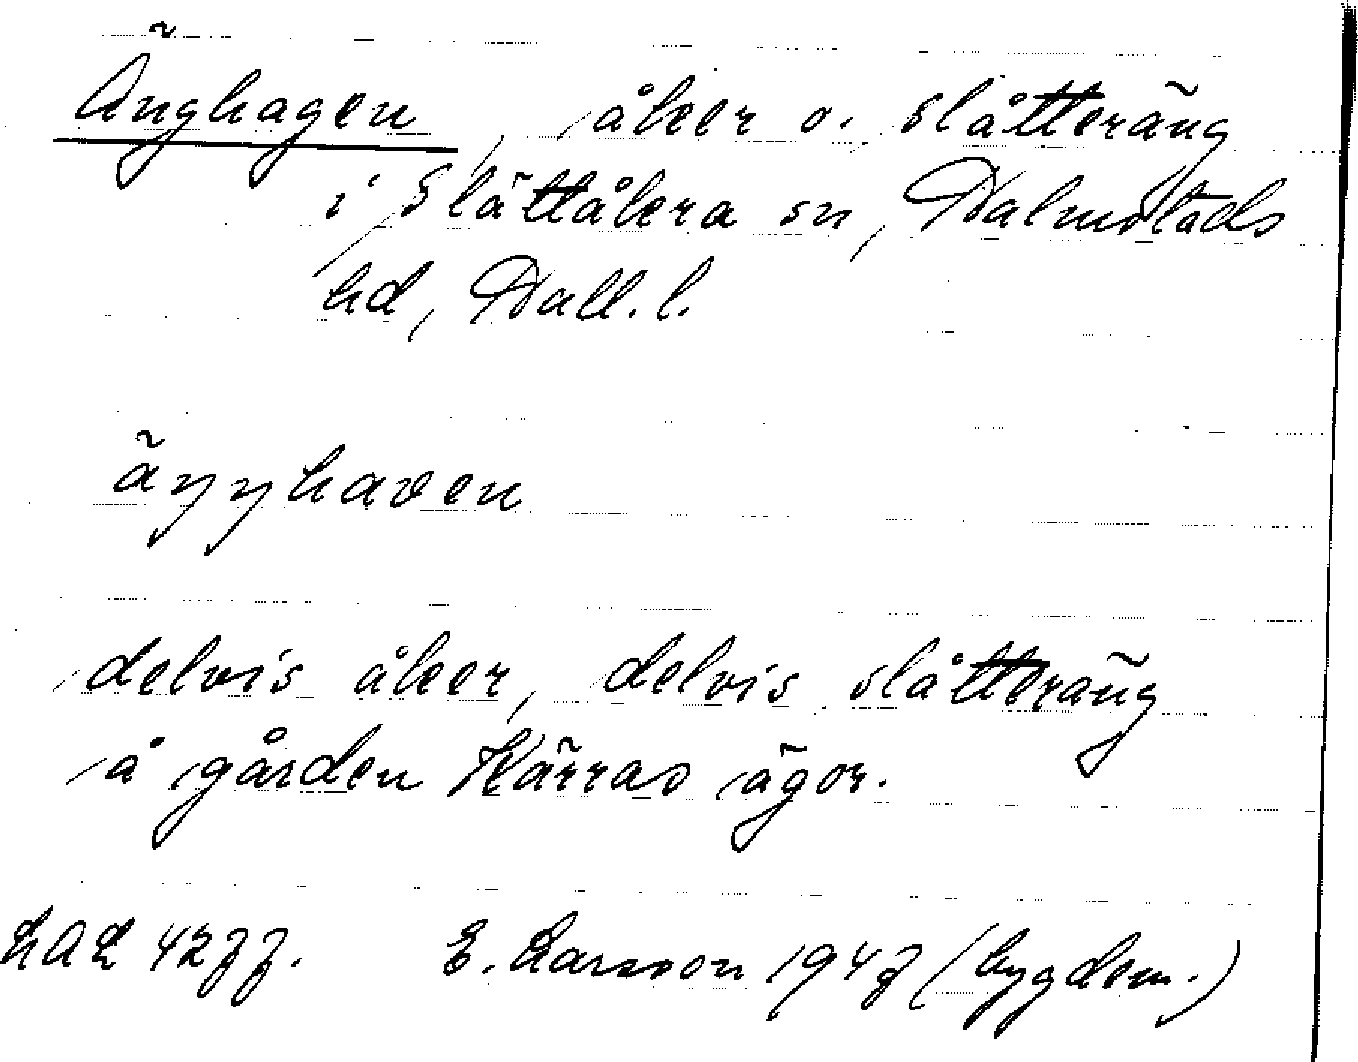 Änghagen, åker o. slåtteräng
i Slättåkra sn, Halmstads
hd, Hall. l.
äŋŋhaven
delvis åker, delvis slåtteräng
å gården Kärras ägor.
LAL 4277. E. Larsson 1947 (bygdem.)